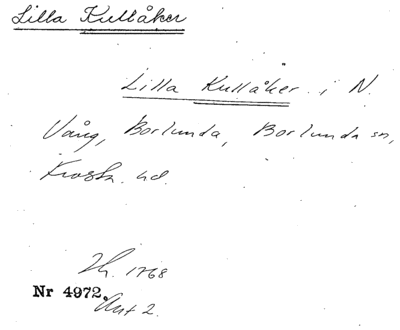 Lilla Kullåker
Lilla Kullåker i N.
Vång, Borlunda, Borlunda sn,
Frosta hd.
Lh. 1768
Nr 4972.
Akt 2.